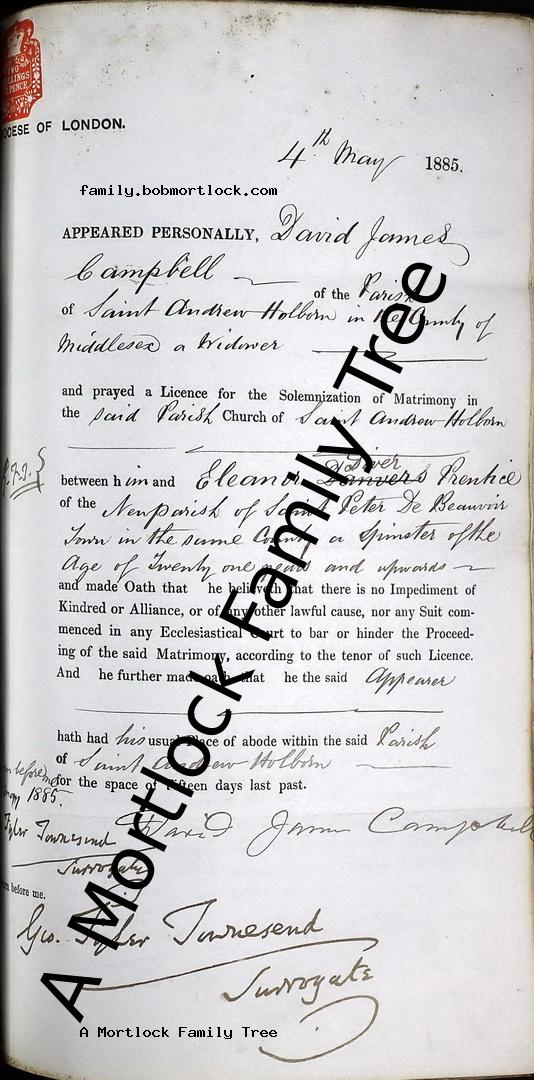 TWO
SHILLINGS
PENCE
OCESE OF LONDON.
4th May 1885.
family.bobmortlock.com
APPEARED PERSONALLY, David James
Campbell
of the Parish
of Saint Andrew Holborn in the County of
Middlesex a Widower
and prayed a Licence for the Solemnization of Matrimony in
the said Parish Church of Saint Andrew Holborn
between him and Eleanor Diver Prentice
of the New parish of Saint Peter De Beauvoir
Town in the same County a Spinster of the
Age of Twenty one years and upwards
and made Oath that he believeth that there is no Impediment of
Kindred or Alliance, or of any other lawful cause, nor any Suit com-
menced in any Ecclesiastical Court to bar or hinder the Proceed-
ing of the said Matrimony, according to the tenor of such Licence.
And he further made oath that he the said Appearer
hath had his usual Place of abode within the said Parish
of Saint Andrew Holborn
for the space of Fifteen days last past.
before me
1885.
David James Campbell
Tyler Townesend
Surrogate
before me.
Geo. Tyler Townesend
Surrogate
A Mortlock Family Tree
A Mortlock Family Tree